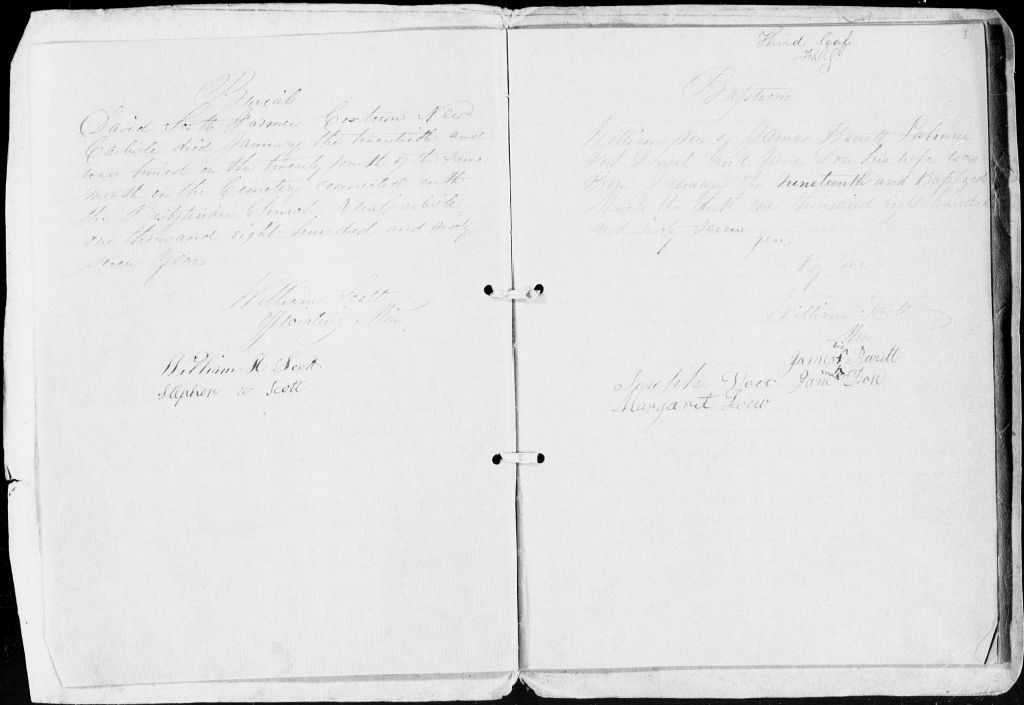 Burial
David Scott Farmer Coxtown New
Carlisle died January the twentieth and
was buried on the twenty fourth of the same
month in the Cemetery connected with
the Presbyterian Church New Carlisle
one thousand eight hundred and sixty
seven Year
William Scott
Officiating Min
William H Scott
Stephen W Scott
Third leaf
3
Baptism
William son of James Labourer
and Jane his wife was
Born January the nineteenth and Baptized
March the one thousand eight hundred
and sixty seven
year
By me
William Scott
Min
James
his
Joseph
Jane
Margaret